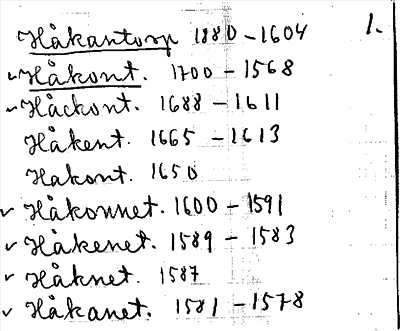 Håkantorp 1880-1604 1.
✓ Håkont. 1700-1568
✓ Håckont. 1688-1611
Håkent. 1665-1613
Hakont. 1650
✓ Håkonnet. 1600-1591
✓ Håkenet. 1589-1583
✓ Håknet. 1587
✓ Håkanet. 1581-1578